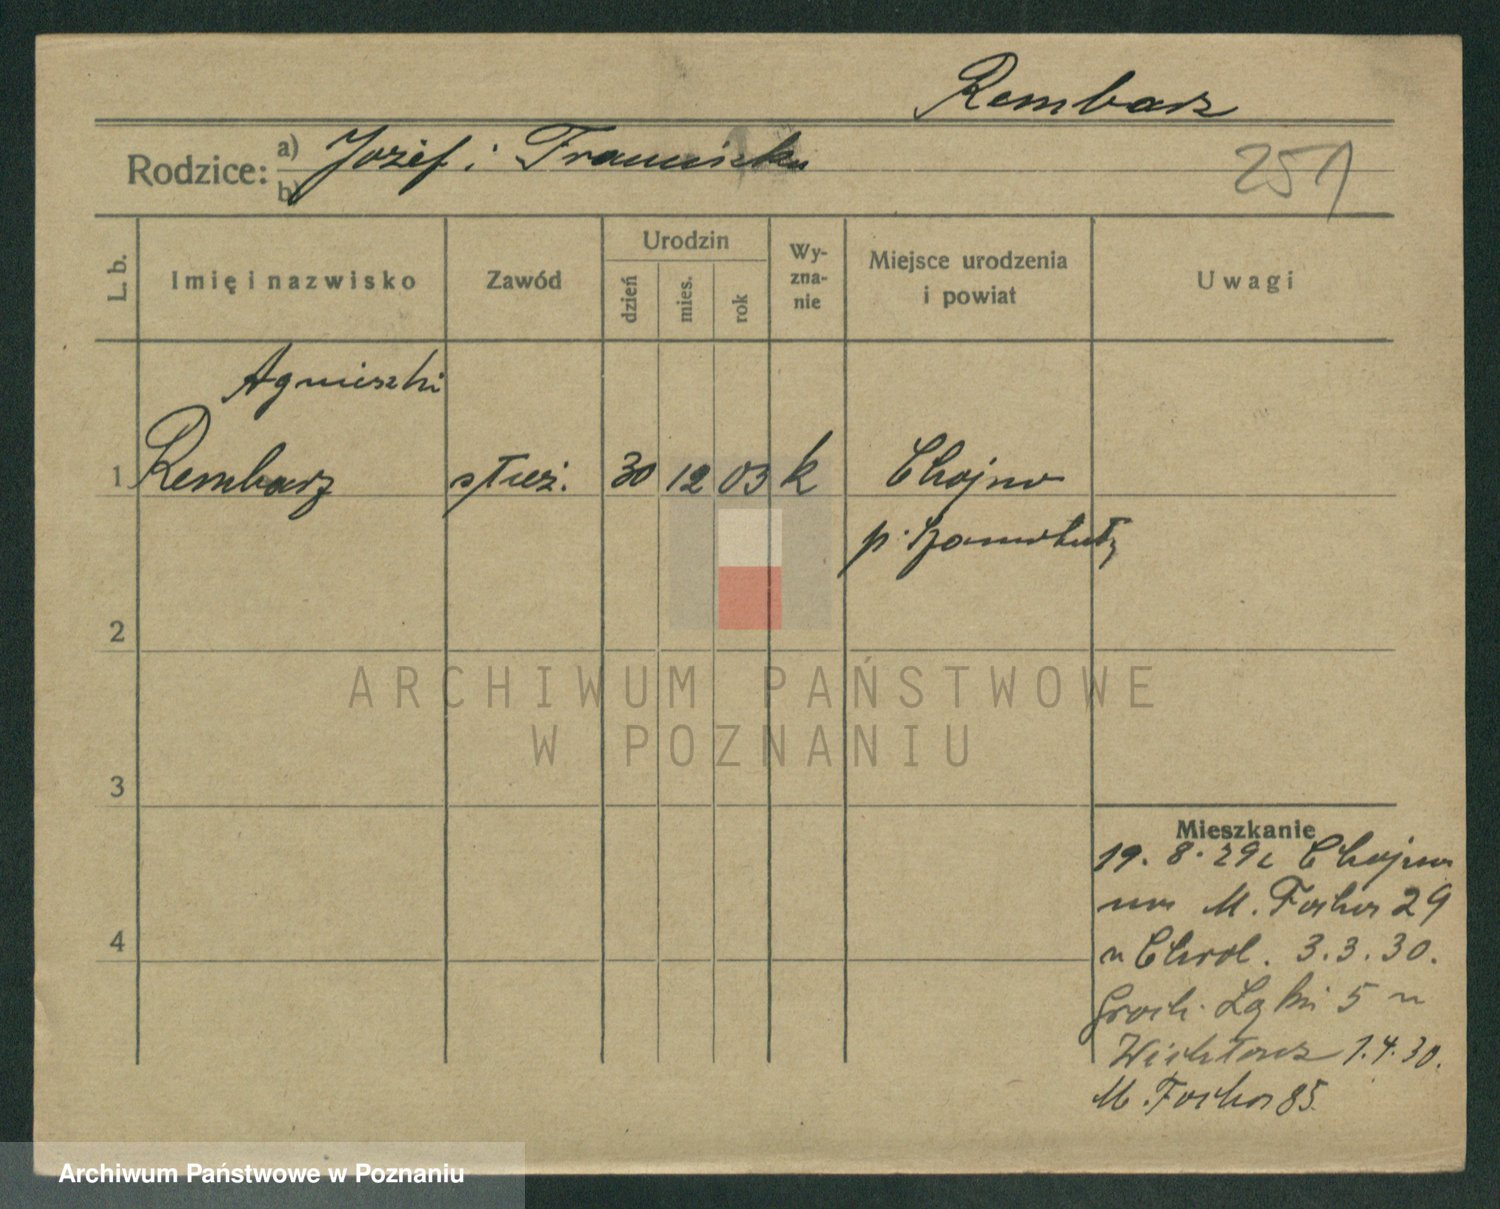 Rembarz
Rodzice: a) Józef i Franciszka
b)
251
L. b.
Imię i nazwisko
Zawód
Urodzin
dzień
mies.
rok
Wy-
zna-
nie
Miejsce urodzenia
i powiat
Uwagi
Agnieszki
1 Rembarz służ. 30 12 03 k Chojno
p. Szamotuły
2
3
4
Mieszkanie
19. 8. 29 z Chojna
M. Focha 29
u Chrol. 3.3.30.
Groch. Łąki 5 u
1.4.30.
M. Focha 85.
ARCHIWUM PAŃSTWOWE
W POZNANIU
Archiwum Państwowe w Poznaniu